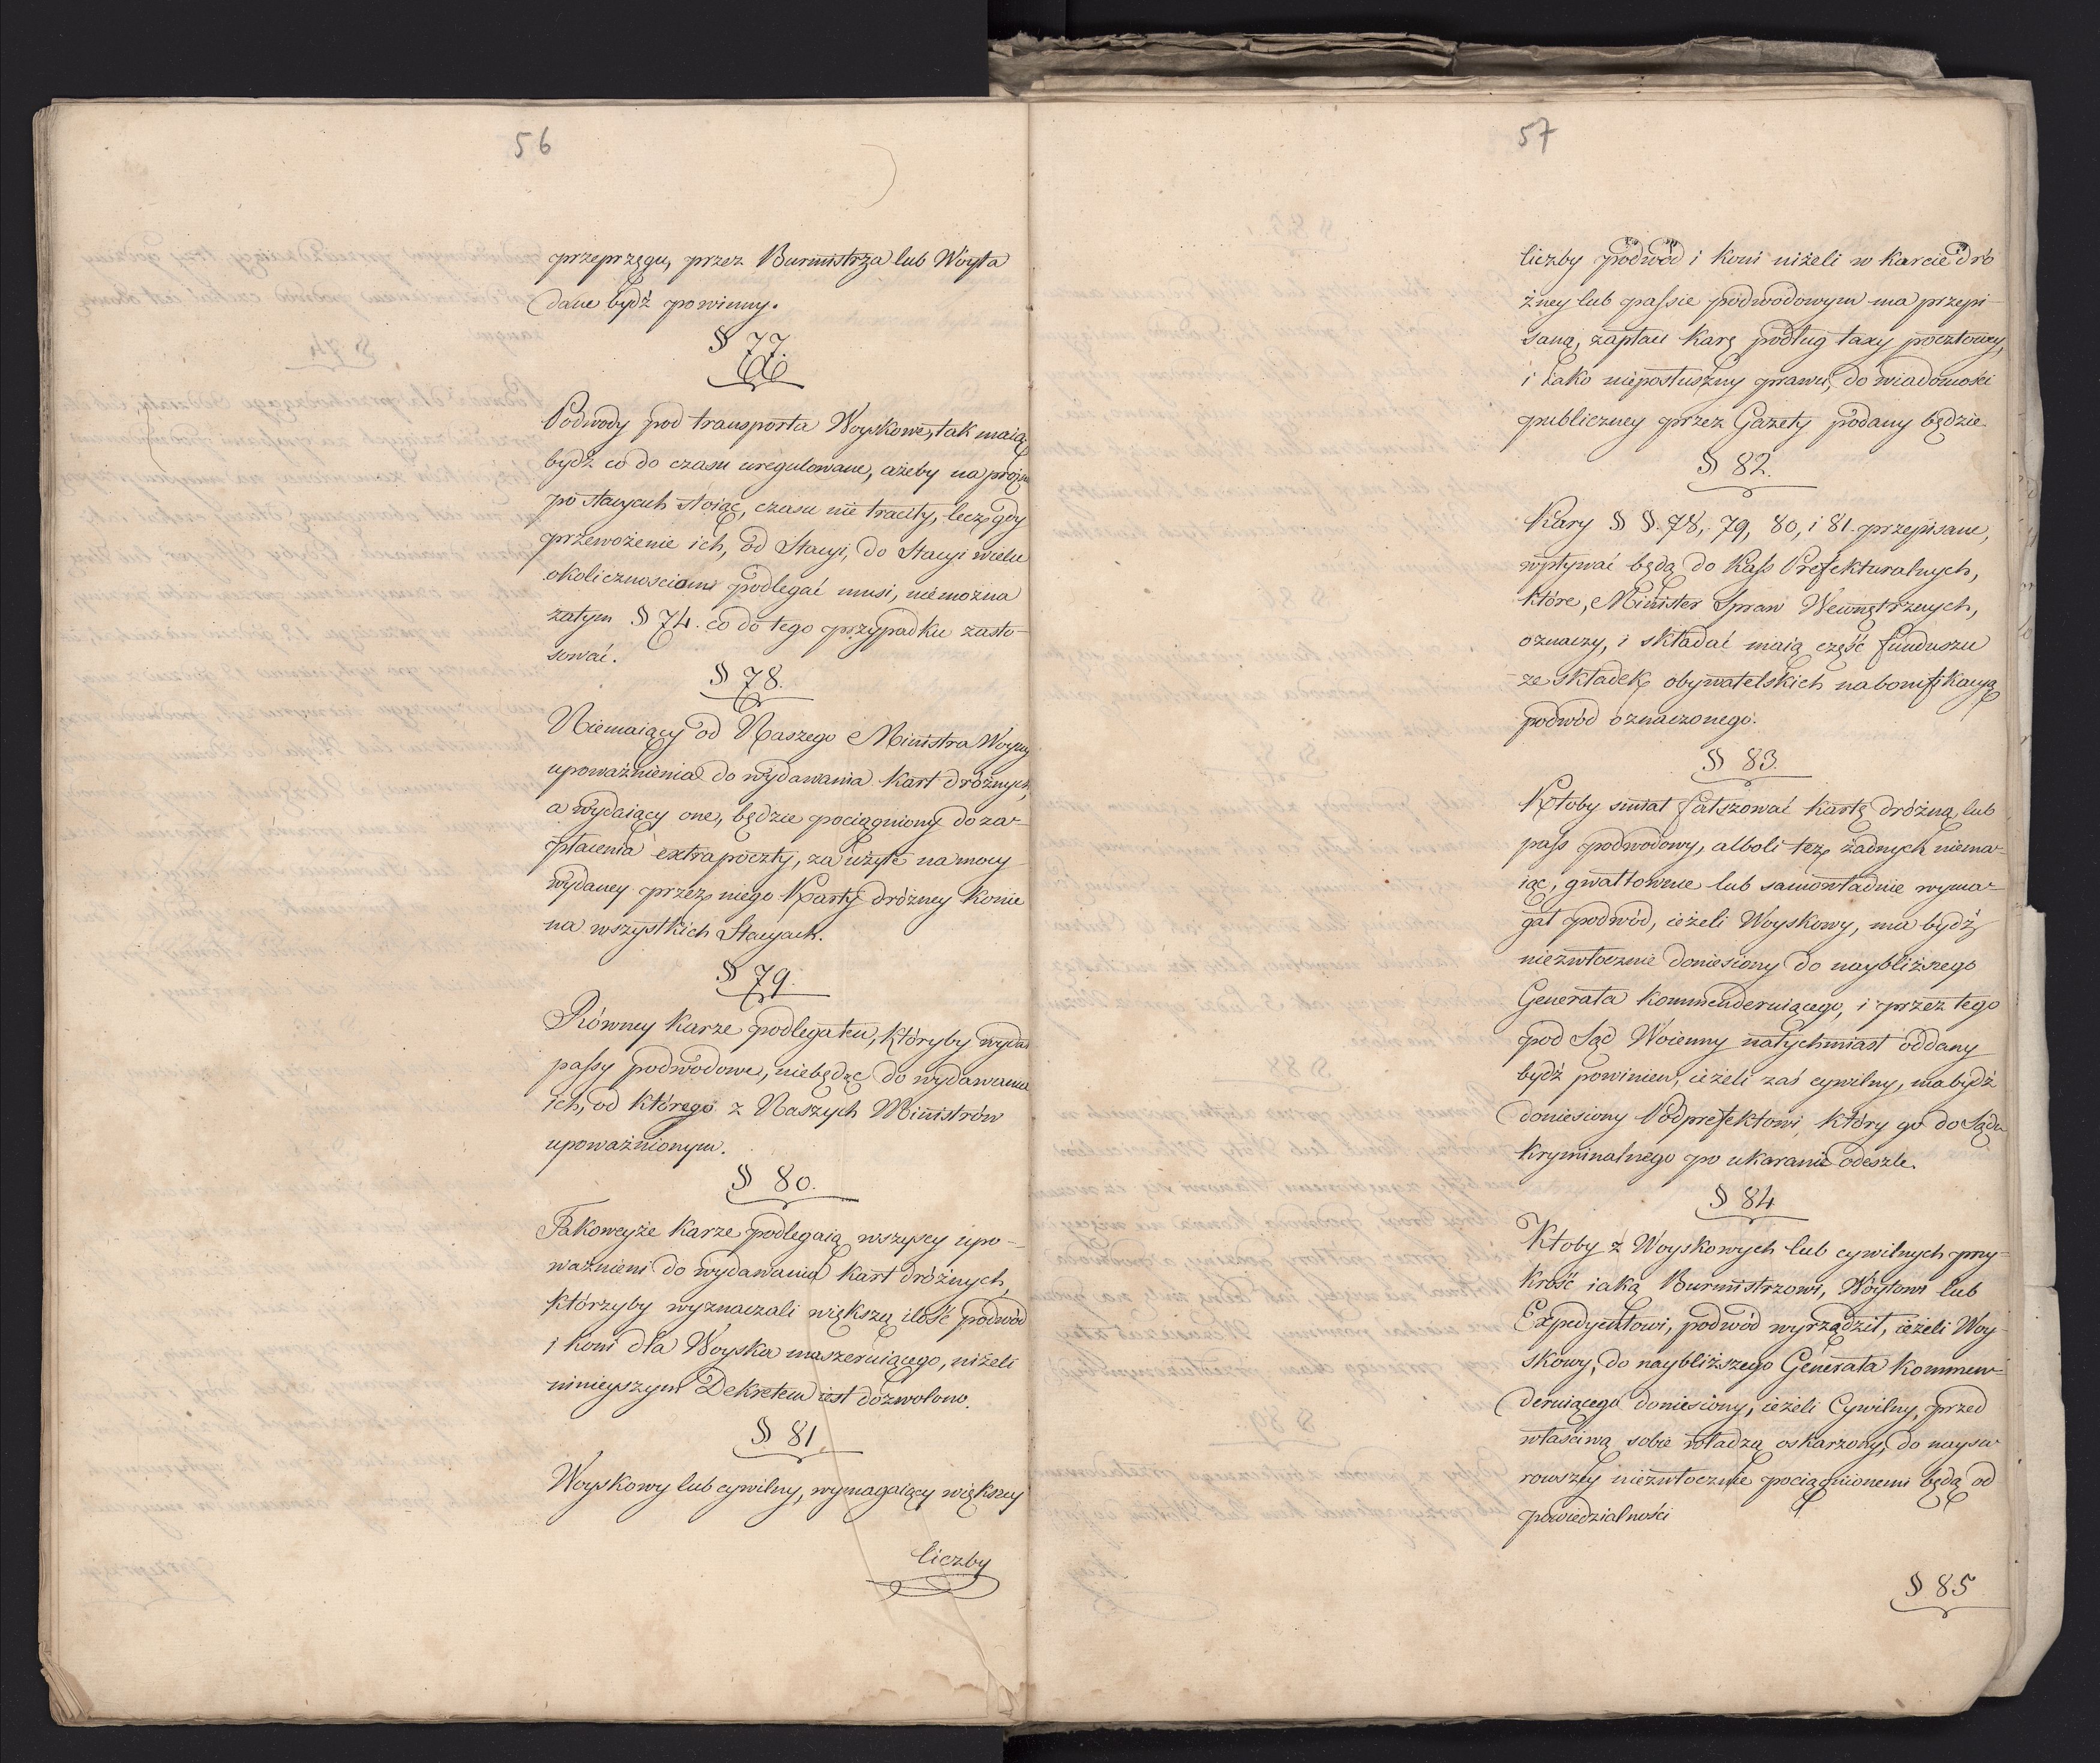 56
przeprzęgu, przez Burmistrza lub Woyta
dane bydź powinny.
§ 77.
Podwody pod transporta Woyskowe, tak maią
bydź co do czasu uregulowane, ażeby na próżno
po stacyach stoiąc, czasu nie traciły, lecz gdy
przewożenie ich, od Stacyi, do Stacyi wielu
okolicznosciom podlegać musi, niemożna
zatym § 74. co do tego przypadku zasto-
sować.
§ 78.
Niemaiący od Naszego Ministra Woyny
upoważnienia do wydawania Kart dróżnych,
a wydaiący one, będzie pociągniony do za-
płacenia extrapoczty, za użyte na mocy
wydaney przez niego Karty dróżney Konie
na wszystkich Stacyach.
§ 79.
Równey Karze podlega ten, któryby wydał
passy podwodowe, niebędąc do wydawania
ich, od którego z Naszych Ministrów
upoważnionym.
§ 80.
Takoweyże Karze podlegaią wszyscy upo-
ważnieni do wydawania Kart dróżnych,
którzyby wyznaczali większą ilość podwód
i koni dla Woyska maszeruiącego, niżeli
ninieyszym Dekretem iest dozwolono.
§ 81.
Woyskowy lub cywilny, wymagaiący większey
liczby
57
liczby podwód i koni niżeli w karcie dró
żney lub passie podwodowym ma przepi-
saną, zapłaci karę podług taxy pocztowey,
i iako nieposłuszny prawu, do wiadomości
publiczney przez Gazety podany będzie.
§ 82.
Kary § §. 78, 79, 80, i 81. przepisane,
wpływać będą do Kass Prefekturalnych,
które, Minister Spraw Wewnętrznych,
oznaczy, i składać maią część funduszu
ze składek obywatelskich na bonifikacyą
podwód oznaczonego.
§ 83.
Ktoby smiał fałszować kartę dróżną lub
pass podwodowy, alboli też żadnych niema-
iąc, gwałtownie lub samowładnie wyma-
gał podwód, ieżeli Woyskowy, ma bydź
niezwłocznie doniesiony do naybliższego
Generała Kommenderuiącego, i przez tego
pod Sąd Woienny natychmiast oddany
bydź powinien, ieżeli zaś cywilny, ma bydź
doniesiony Podprefektowi, który go do Sądu
Kryminalnego po ukaranie odeszle.
§ 84
Ktoby z Woyskowych lub cywilnych przy-
krość iaką Burmistrzowi, Wóytowi lub
Expedyentowi, podwód wyrządził, ieżeli Woy-
skowy, do naybliższego Generała Kommen-
deruiącego doniesiony, ieżeli Cywilny, przed
właściwą sobie władzą oskarzony, do naysu-
rowszey niezwłocznie pociągnionemi będą od
powiedzialności
§ 85